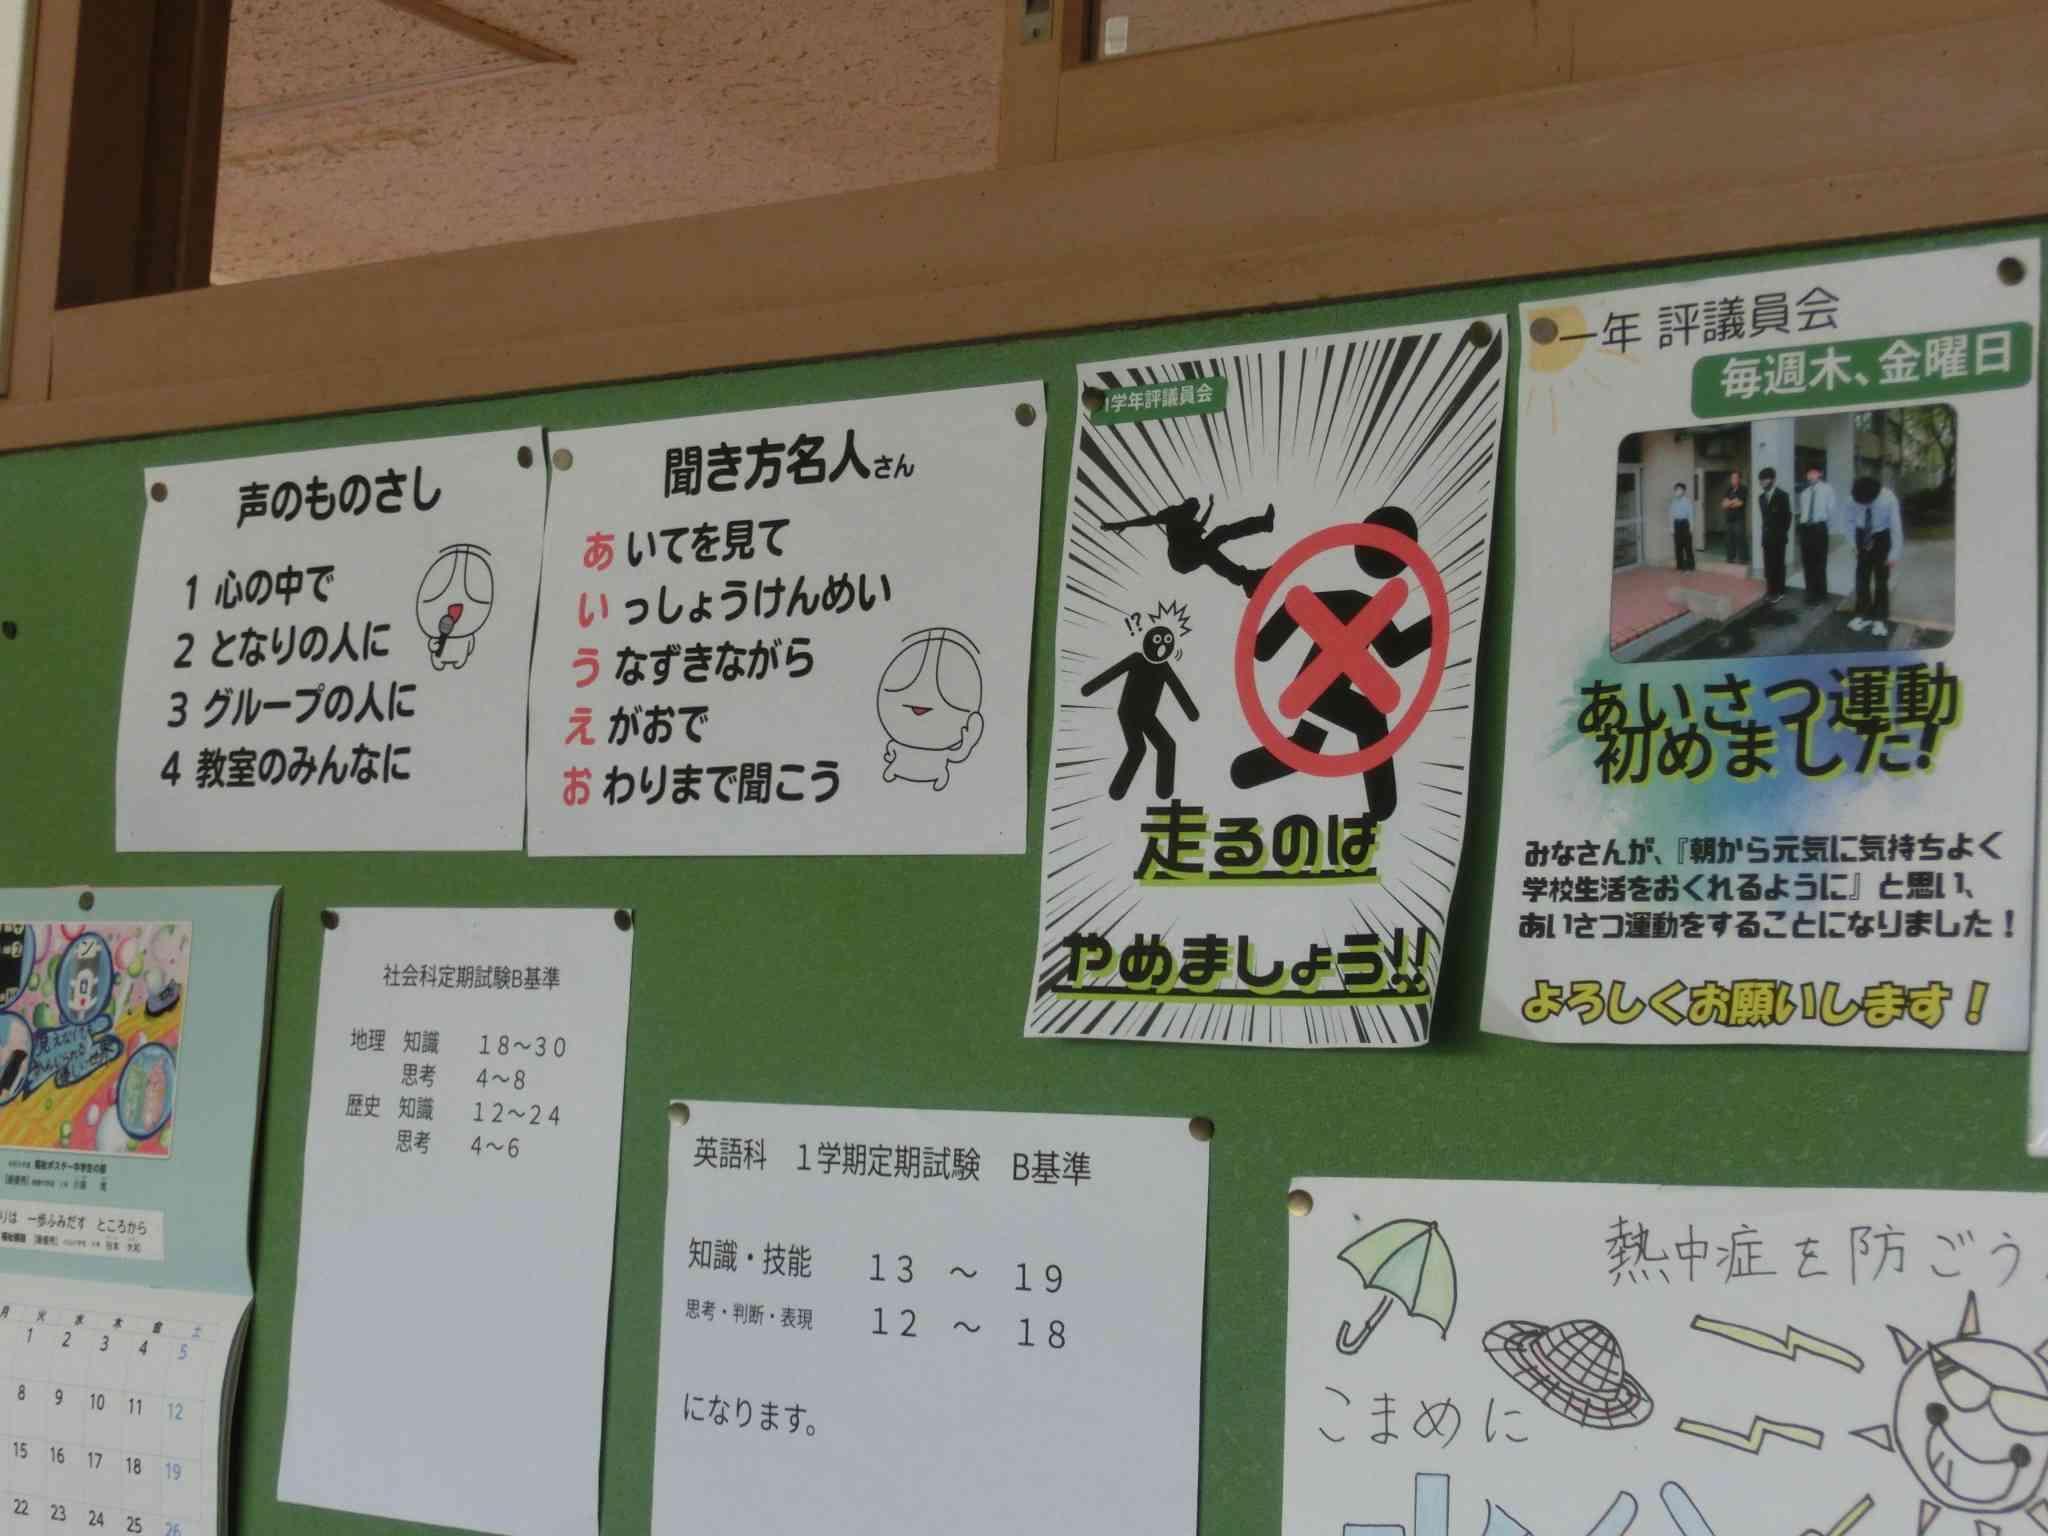 声のものさし
1 心の中で
2 となりの人に
3 グループの人に
4 教室のみんなに
聞き方名人さん
あいてを見て
いっしょうけんめい
うなずきながら
えがおで
おわりまで聞こう
1学年評議員会
!?
走るのは
やめましょう!!
一年 評議員会
毎週木、金曜日
あいさつ運動
初めました!
みなさんが、『朝から元気に気持ちよく
学校生活をおくれるように』と思い、
あいさつ運動をすることになりました!
よろしくお願いします!
福祉ポスター中学生の部
一歩ふみだす ところから
月 火 水 木 金 土
1 2 3 4 5
8 9 10 11 12
15 16 17 18 19
22 23 24 25 26
社会科定期試験B基準
地理 知識 18～30
思考 4～8
歴史 知識 12～24
思考 4～6
英語科 1学期定期試験 B基準
知識・技能 13 ～ 19
思考・判断・表現 12 ～ 18
になります。
熱中症を防ごう
こまめに